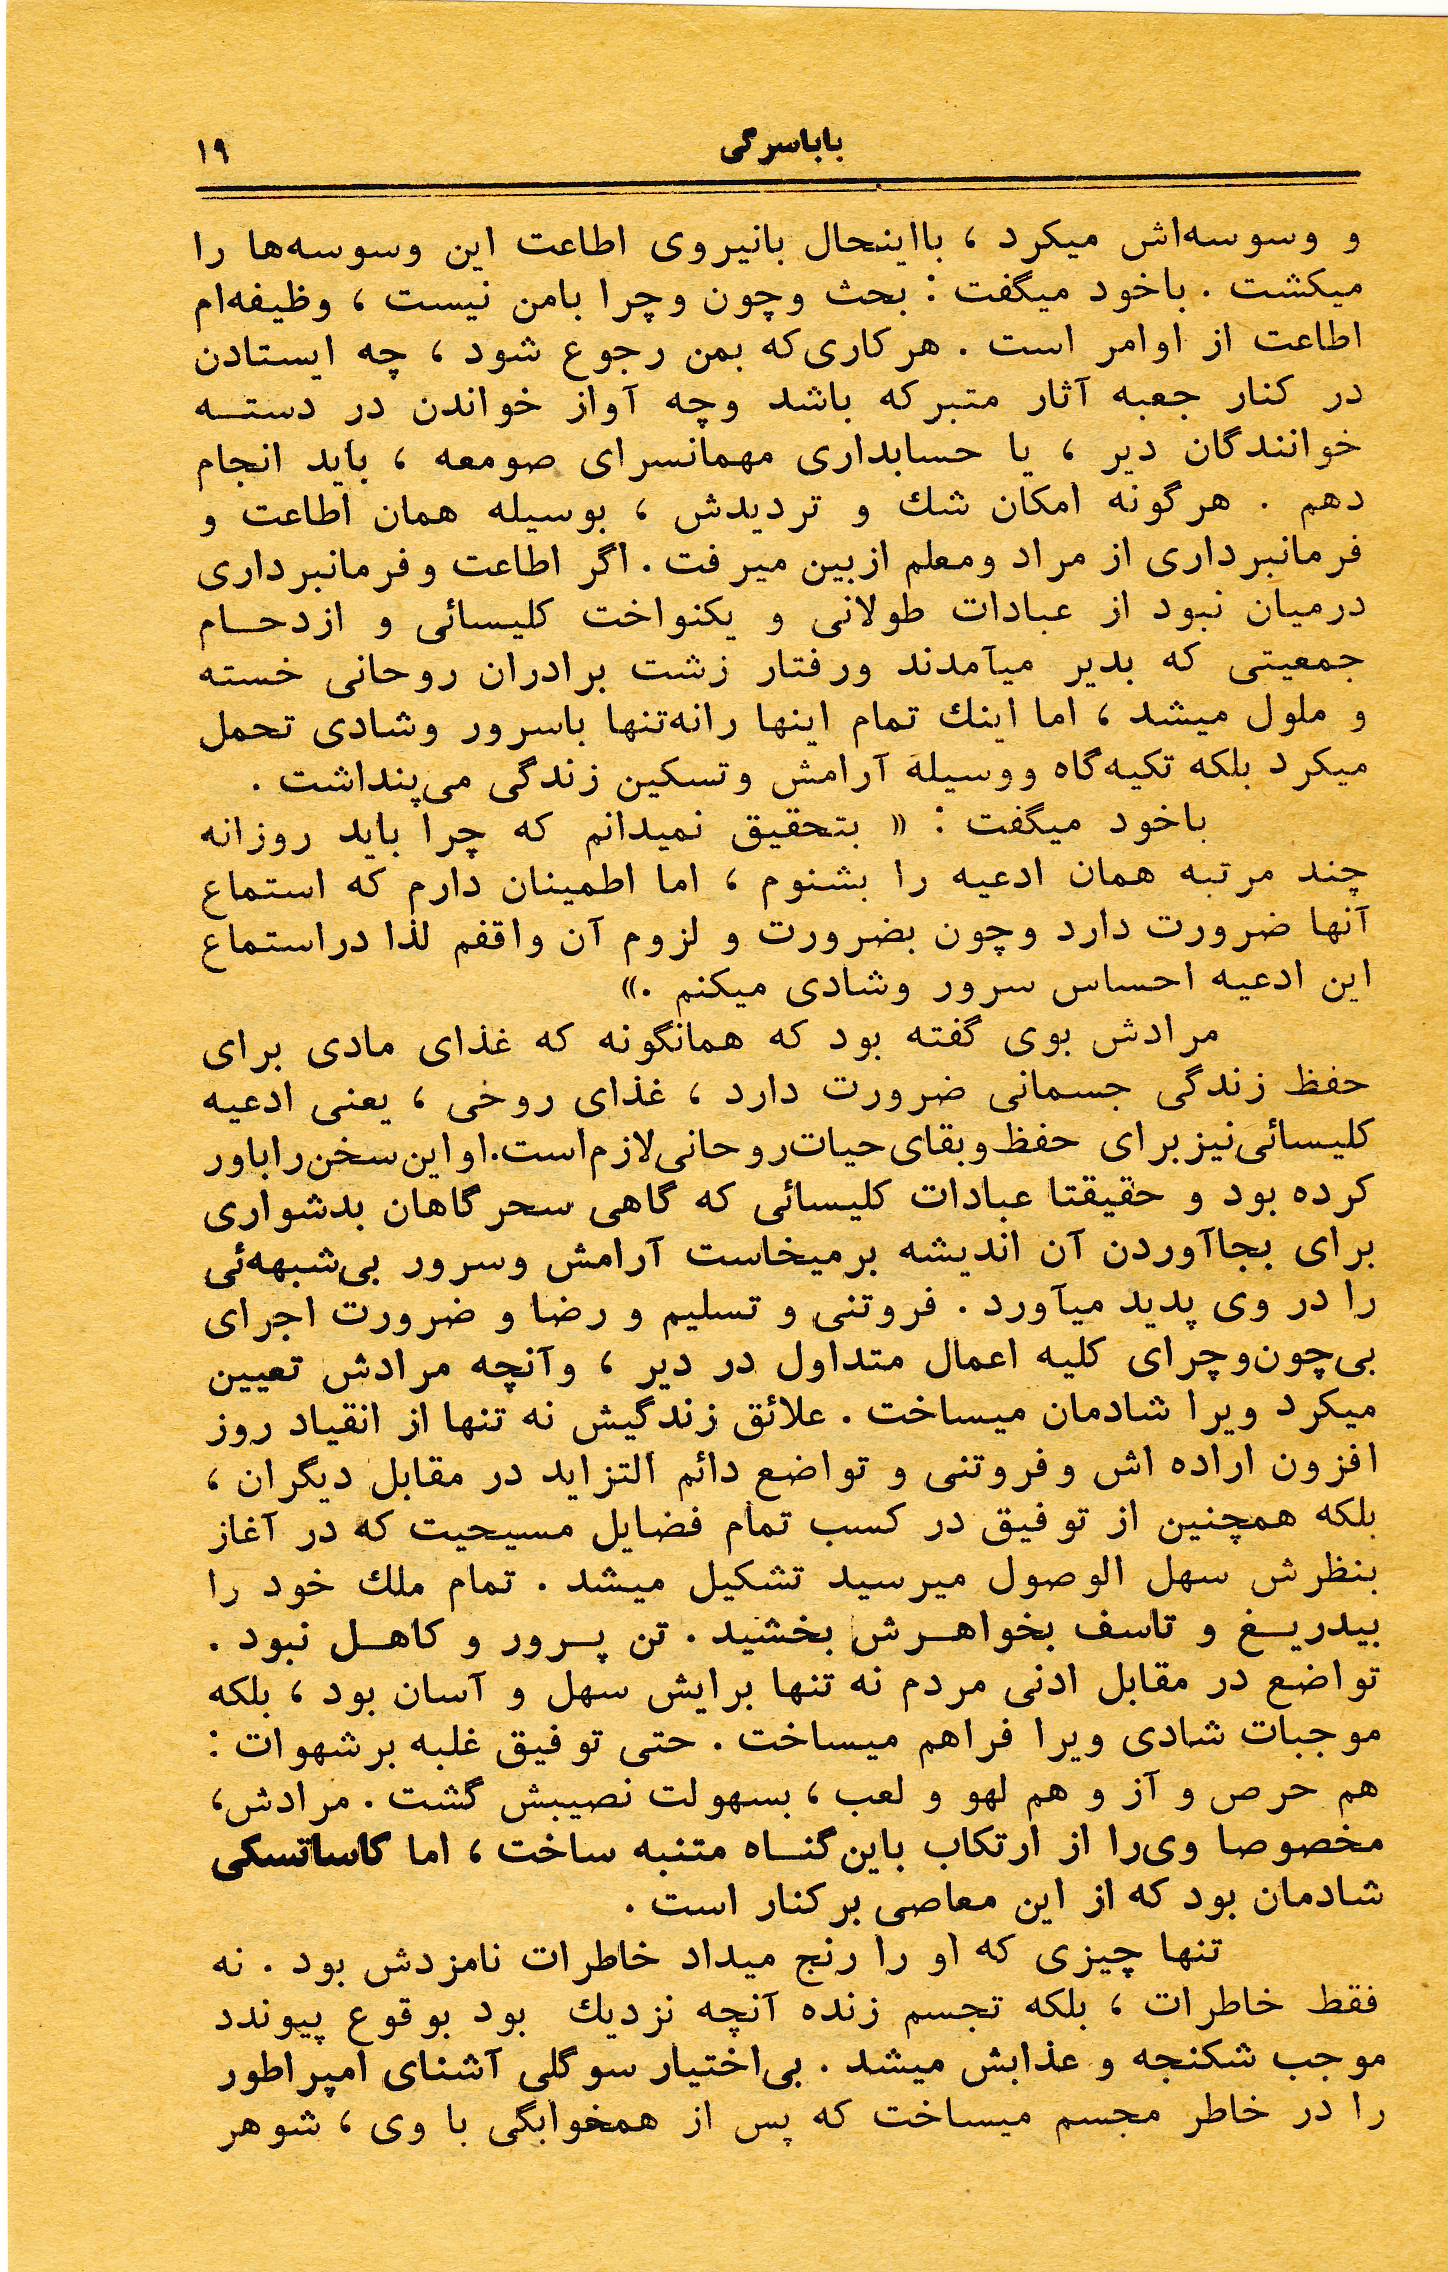 باباسرگی
۱۹
و وسوسه‌اش میکرد ، بااینحال بانیروی اطاعت این وسوسه‌ها را
میکشت . باخود میگفت : بحث وچون وچرا بامن نیست ، وظیفه‌ام
اطاعت از اوامر است . هرکاری‌که بمن رجوع شود ، چه ایستادن
در کنار جعبه آثار متبرکه باشد وچه آواز خواندن در دسته
خوانندگان دیر ، یا حسابداری مهمانسرای صومعه ، باید انجام
دهم . هرگونه امکان شك و تردیدش ، بوسیله همان اطاعت و
فرمانبرداری از مراد ومعلم ازبین میرفت . اگر اطاعت وفرمانبرداری
درمیان نبود از عبادات طولانی و یکنواخت کلیسائی و ازدحام
جمعیتی که بدیر میآمدند ورفتار زشت برادران روحانی خسته
و ملول میشد ، اما اینك تمام اینها رانه‌تنها باسرور وشادی تحمل
میکرد بلکه تکیه‌گاه ووسیله آرامش وتسکین زندگی می‌پنداشت .
باخود میگفت : « بتحقیق نمیدانم که چرا باید روزانه
چند مرتبه همان ادعیه را بشنوم ، اما اطمینان دارم که استماع
آنها ضرورت دارد وچون بضرورت و لزوم آن واقفم لذا دراستماع
این ادعیه احساس سرور وشادی میکنم .»
مرادش بوی گفته بود که همانگونه که غذای مادی برای
حفظ زندگی جسمانی ضرورت دارد ، غذای روخی ، یعنی ادعیه
کلیسائی‌نیز برای حفظ وبقای حیات‌روحانی‌لازم‌است.او این‌سخن‌راباور
کرده بود و حقیقتا عبادات کلیسائی که گاهی سحرگاهان بدشواری
برای بجاآوردن آن اندیشه برمیخاست آرامش وسرور بی‌شبهه‌ئی
را در وی پدید میآورد . فروتنی و تسلیم و رضا و ضرورت اجرای
بی‌چون‌وچرای کلیه اعمال متداول در دیر ، وآنچه مرادش تعیین
میکرد ویرا شادمان میساخت . علائق زندگیش نه تنها از انقیاد روز
افزون اراده اش وفروتنی و تواضع دائم التزاید در مقابل دیگران ،
بلکه همچنین از توفیق در کسب تمام فضایل مسیحیت که در آغاز
بنظرش سهل الوصول میرسید تشکیل میشد . تمام ملك خود را
بیدریغ و تاسف بخواهرش بخشید . تن پرور و کاهل نبود .
تواضع در مقابل ادنی مردم نه تنها برایش سهل و آسان بود ، بلکه
موجبات شادی ویرا فراهم میساخت . حتی توفیق غلبه برشهوات :
هم حرص و آز و هم لهو و لعب ، بسهولت نصیبش گشت . مرادش،
مخصوصا وی‌را از ارتکاب باین گناه متنبه ساخت ، اما کاساتسکی
شادمان بود که از این معاصی برکنار است .
تنها چیزی که او را رنج میداد خاطرات نامزدش بود . نه
فقط خاطرات ، بلکه تجسم زنده آنچه نزدیك بود بوقوع پیوندد
موجب شکنجه و عذابش میشد . بی‌اختیار سوگلی آشنای امپراطور
را در خاطر مجسم میساخت که پس از همخوابگی با وی ، شوهر